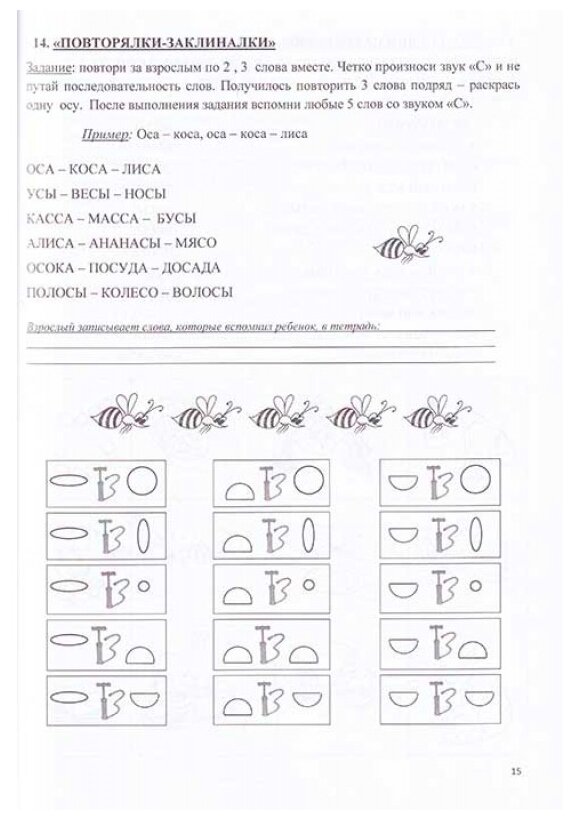 14. «ПОВТОРЯЛКИ-ЗАКЛИНАЛКИ»
Задание: повтори за взрослым по 2 , 3 слова вместе. Четко произноси звук «С» и не
путай последовательность слов. Получилось повторить 3 слова подряд – раскрась
одну осу. После выполнения задания вспомни любые 5 слов со звуком «С».
Пример: Оса – коса, оса – коса – лиса
ОСА – КОСА – ЛИСА
УСЫ – ВЕСЫ – НОСЫ
КАССА – МАССА – БУСЫ
АЛИСА – АНАНАСЫ – МЯСО
ОСОКА – ПОСУДА – ДОСАДА
ПОЛОСЫ – КОЛЕСО – ВОЛОСЫ
Взрослый записывает слова, которые вспомнил ребенок, в тетрадь:
15